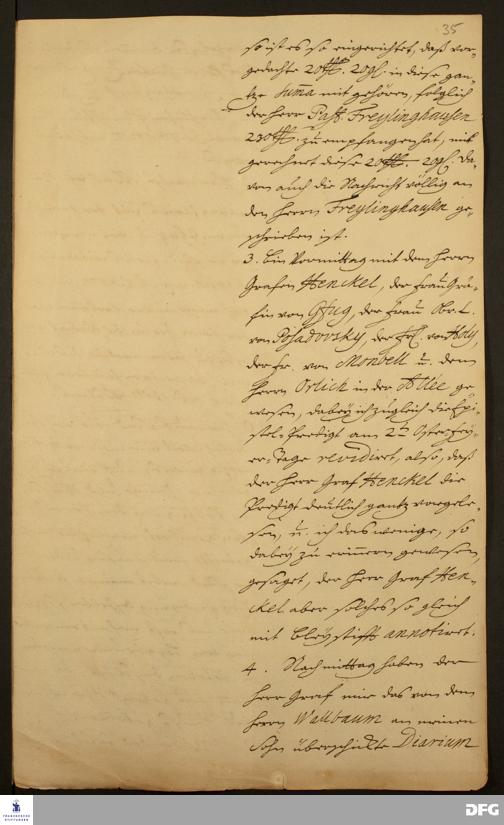 35
so ist es so eingerichtet, daß vor-
gedachte 20 rthl. 20 gl. in diese gan-
tze Suma mit gehören, folglich
der Herr Past. Freylinghausen
230 rthl. zu empfangen hat, mit
gerechnet diese 20 rthl. 20 gl. da-
von auch die Nachricht völlig an
den Herrn Freylinghausen ge-
schrieben ist.
3. bin Vormittag mit dem Herrn
Grafen Henckel, der Frau Grä-
fin von Gfug, der Frau Obr. L.
von Posadovsky, der Frl. von Holy,
der Fr. von Monbell u. dem
Herrn Orlich in der Allée ge
wesen, dabey ich zugleich die Epi-
stel-Predigt am 2ten Osterfey-
er-Tage revidiret, also, daß
der Herr Graf Henckel die
Predigt deutlich gantz vorgele-
sen, u. ich das wenige, so
dabey zu erinnern gewesen,
gesaget, der Herr Graf Hen-
ckel aber solches so gleich
mit Bleystifft annotiret.
4. Nachmittag haben der
Herr Graf mir das von dem
Herrn Wallbaum an meinen
Sohn überschickte Diarium
FRANCKESCHE STIFTUNGEN
DFG